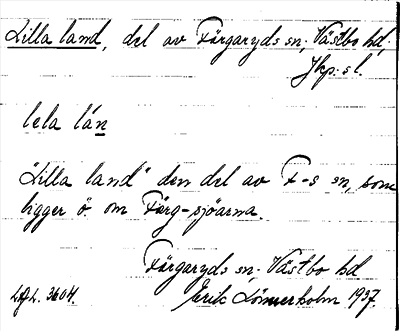 Lilla land, del av Färgaryds sn, Västbo hd,
Jkp. s l.
lela lán
"Lilla land" den del av F-s sn, som
ligger ö om Färg-sjöarna.
Färgaryds sn, Västbo hd
Erik Lönnerholm 1937.